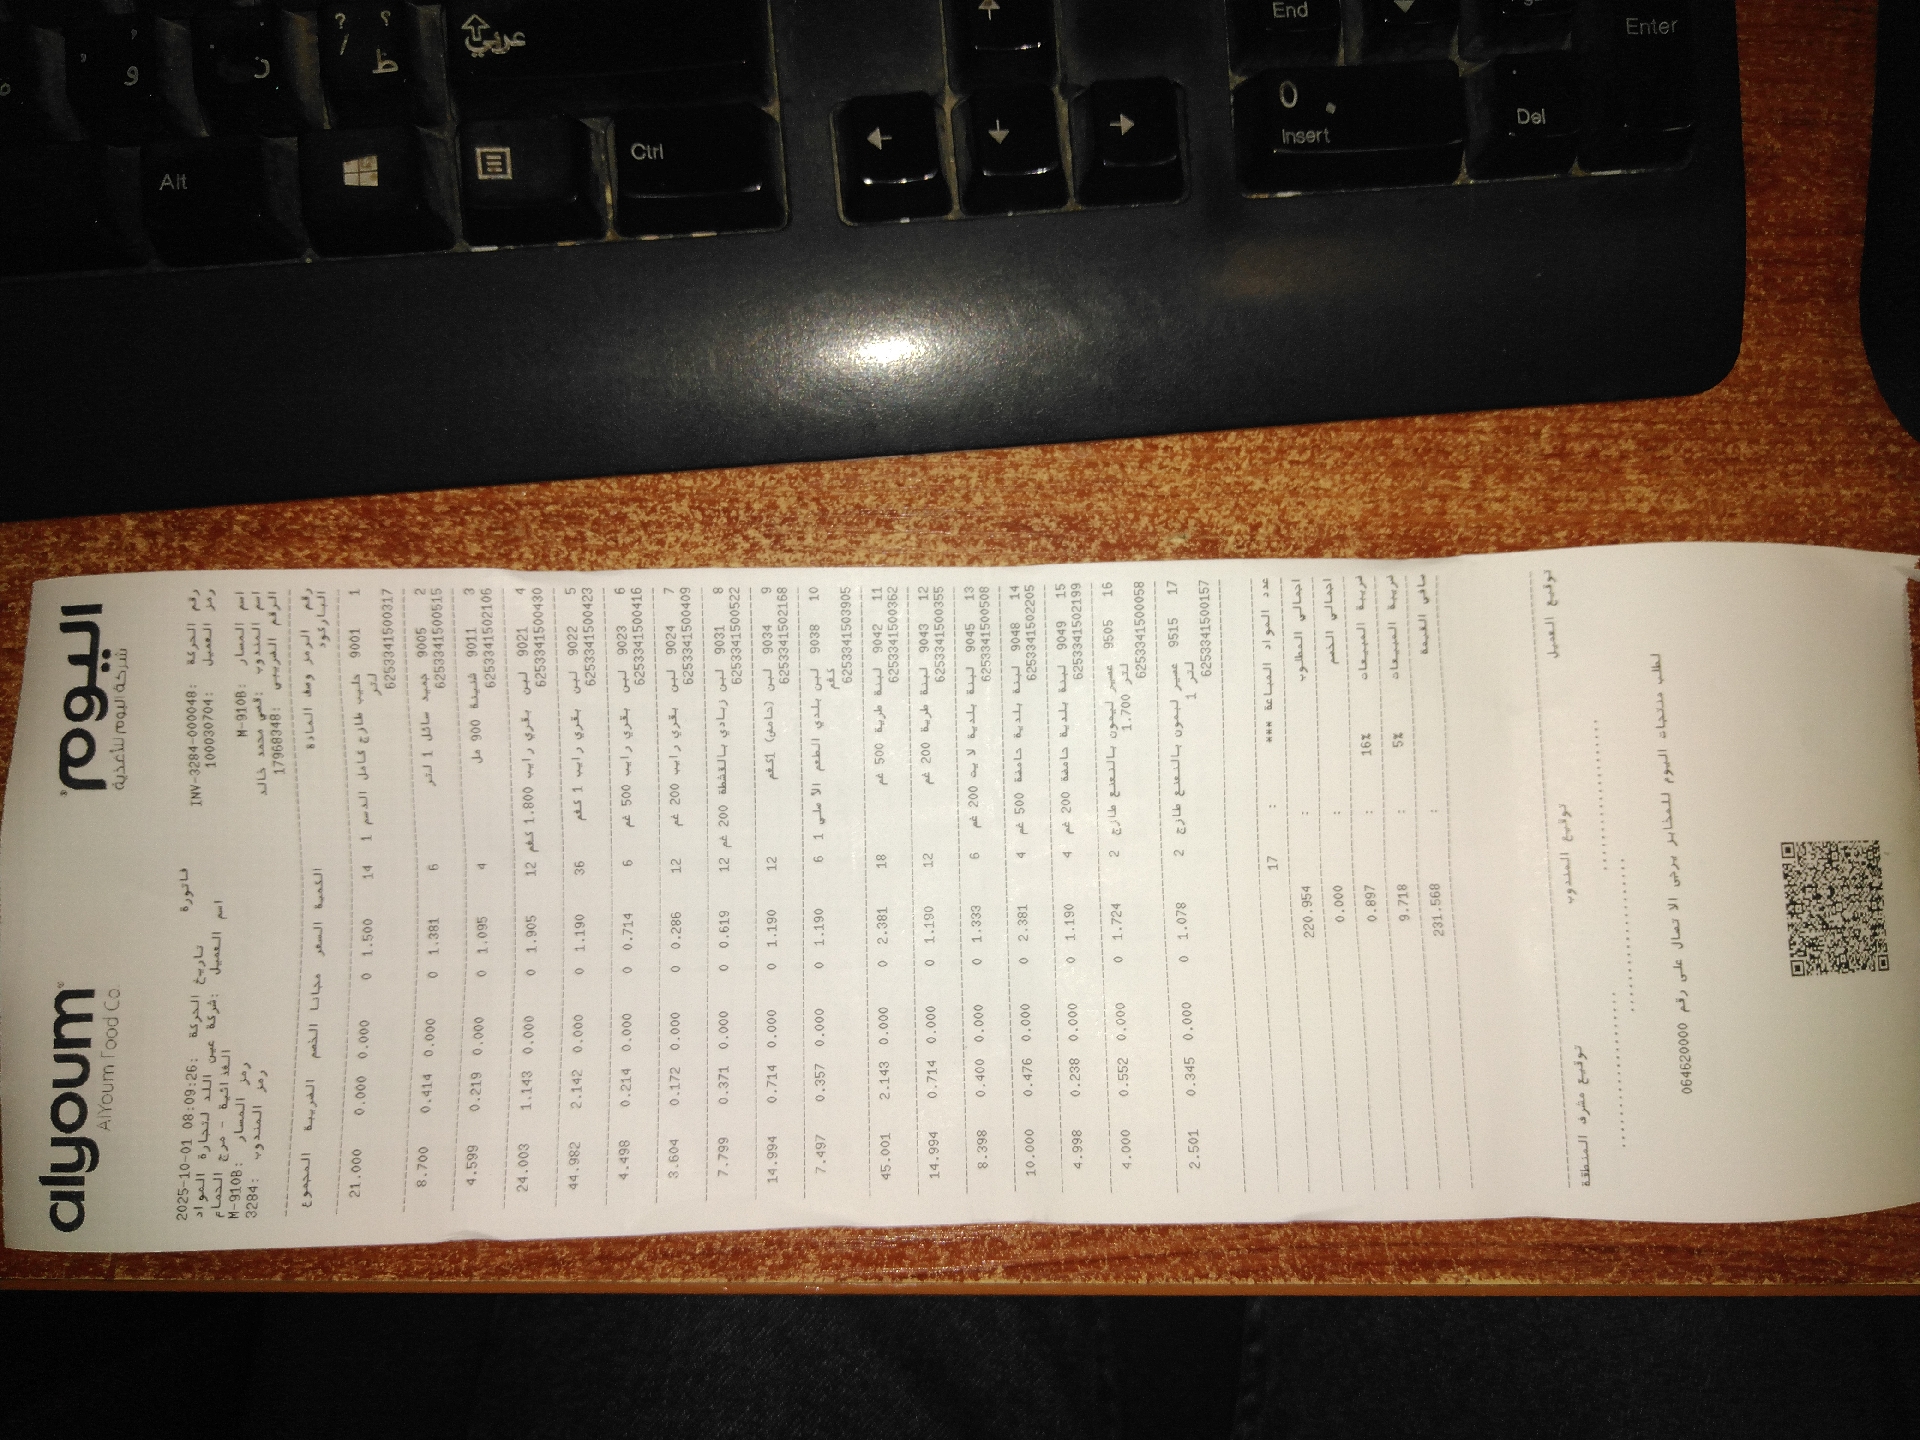 عربي
Alt
Ctrl
End
0
Insert
Del
Enter
alyoum
اليوم
AlYoum Food Co.
شركة اليوم للأغذية
فاتورة
رقم الحركة: INV-3284-000048
تاريخ الحركة: 2025-10-01 08:09:26
رمز العميل: 100030704
اسم العميل: شركة عين اللد لتجارة المواد الغذائية - مرج الحمام
اسم المسار: M-910B
رمز المسار: M-910B
اسم المندوب: قصي محمد خالد
رمز المندوب: 3284
الرقم الضريبي: 17968348
رقم الرمز وصف المادة الكمية السعر مجانا الخصم الضريبة المجموع
الباركود
1 9001 حليب طازج كامل الدسم 1 لتر 14 1.500 0 0.000 0.000 21.000
6253341500317
2 9005 جميد سائل 1 لتر 6 1.381 0 0.000 0.414 8.700
6253341500515
3 9011 شنينة 900 مل 4 1.095 0 0.000 0.219 4.599
6253341502106
4 9021 لبن بقري رايب 1.800 كغم 12 1.905 0 0.000 1.143 24.003
6253341500430
5 9022 لبن بقري رايب 1 كغم 36 1.190 0 0.000 2.142 44.982
6253341500423
6 9023 لبن بقري رايب 500 غم 6 0.714 0 0.000 0.214 4.498
6253341500416
7 9024 لبن بقري رايب 200 غم 12 0.286 0 0.000 0.172 3.604
6253341500409
8 9031 لبن زبادي بالقشطة 200 غم 12 0.619 0 0.000 0.371 7.799
6253341500522
9 9034 لبن (حامض) 1كغم 12 1.190 0 0.000 0.714 14.994
6253341502168
10 9038 لبن بلدي الطعم الاصلي 1 كغم 6 1.190 0 0.000 0.357 7.497
6253341503905
11 9042 لبنة طرية 500 غم 18 2.381 0 0.000 2.143 45.001
6253341500362
12 9043 لبنة طرية 200 غم 12 1.190 0 0.000 0.714 14.994
6253341500355
13 9045 لبنة بلدية لايت 200 غم 6 1.333 0 0.000 0.400 8.398
6253341500508
14 9048 لبنة بلدية حامضة 500 غم 4 2.381 0 0.000 0.476 10.000
6253341502205
15 9049 لبنة بلدية حامضة 200 غم 4 1.190 0 0.000 0.238 4.998
6253341502199
16 9505 عصير ليمون بالنعنع طازج 1.700 لتر 2 1.724 0 0.000 0.552 4.000
6253341500058
17 9515 عصير ليمون بالنعنع طازج 1 لتر 2 1.078 0 0.000 0.345 2.501
6253341500157
عدد المواد المباعة *** : 17
اجمالي المطلوب : 220.954
اجمالي الخصم : 0.000
ضريبة المبيعات 16% : 0.897
ضريبة المبيعات 5% : 9.718
صافي القيمة : 231.568
توقيع العميل
توقيع المندوب
توقيع مشرف المنطقة
لطلب منتجات اليوم للمخابز يرجى الاتصال على رقم 064620000